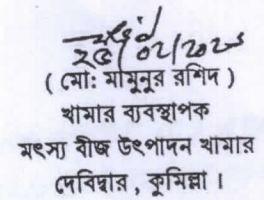 ( মো: মামুনুর রশিদ )
খামার ব্যবস্থাপক
মৎস্য বীজ উৎপাদন খামার
দেবিদ্বার , কুমিল্লা ।